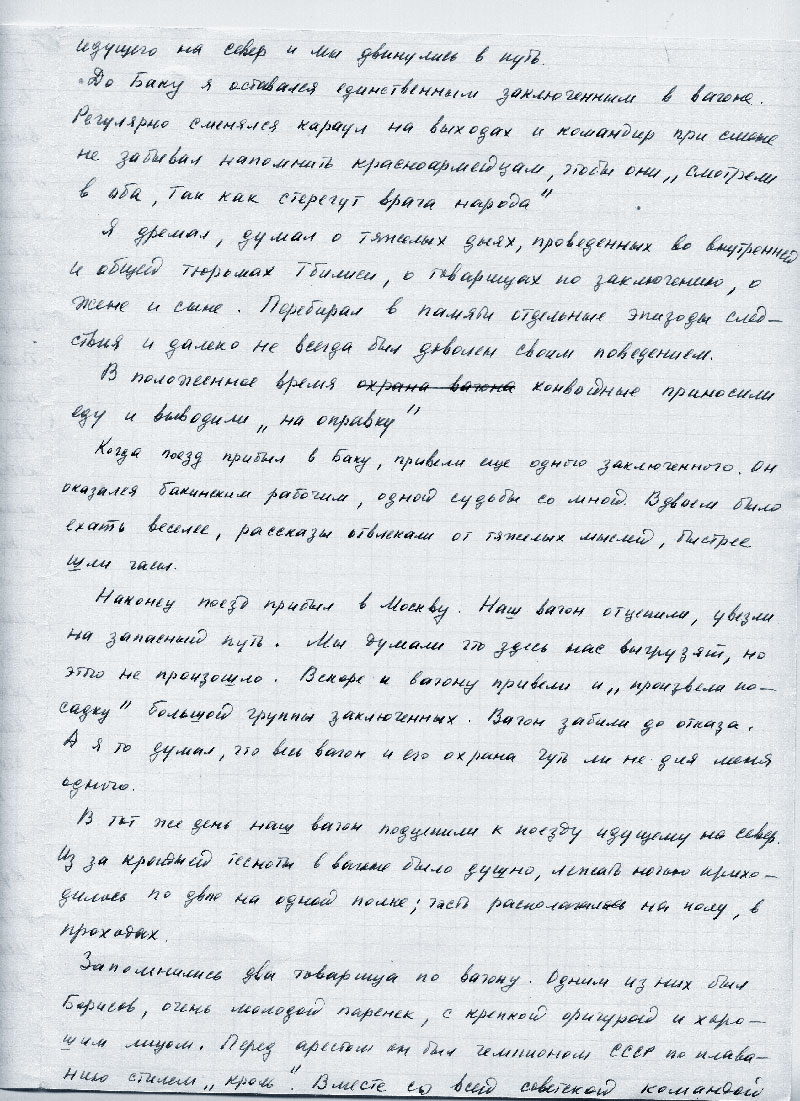 идущего на север и мы двинулись в путь.
До Баку я оставался единственным заключенным в вагоне.
Регулярно сменялся караул на выходах и командир при смене
не забывал напомнить красноармейцам, чтобы они „смотрели
в оба, так как стерегут врага народа"
Я дремал, думал о тяжелых днях, проведенных во внутренней
и общей тюрьмах Тбилиси, о товарищах по заключению, о
жене и сыне. Перебирал в памяти отдельные эпизоды след-
ствия и далеко не всегда был доволен своим поведением.
В положенное время охрана вагона конвойные приносили
еду и выводили „на оправку"
Когда поезд прибыл в Баку, привели еще одного заключенного. Он
оказался бакинским рабочим, одной судьбы со мной. Вдвоем было
ехать веселее, рассказы отвлекали от тяжелых мыслей, быстрее
шли часы.
Наконец поезд прибыл в Москву. Наш вагон отцепили, увезли
на запасный путь. Мы думали что здесь нас выгрузят, но
этого не произошло. Вскоре к вагону привели и „произвели по-
садку" большой группы заключенных. Вагон забили до отказа.
А я то думал, что весь вагон и его охрана чуть ли не для меня
одного.
В тот же день наш вагон подцепили к поезду идущему на север.
Из за крайней тесноты в вагоне было душно, лежать ночью прихо-
дилось по двое на одной полке; часть располагалась на полу, в
проходах.
Запомнились два товарища по вагону. Одним из них был
Борисов, очень молодой паренек, с крепкой фигурой и хоро-
шим лицом. Перед арестом он был чемпионом СССР по плава-
нию стилем „кроль". Вместе со всей советской командой